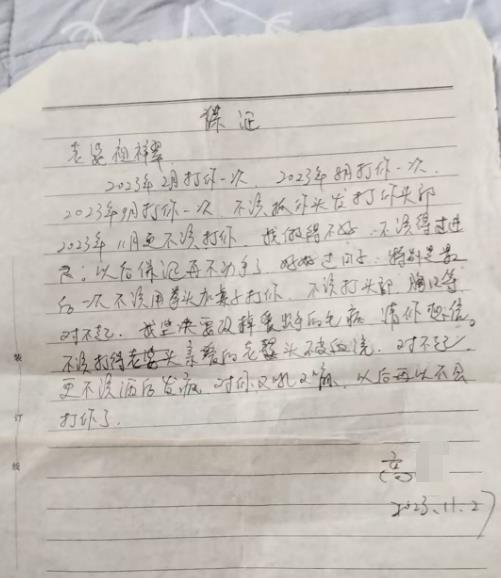 保证
老婆祖祥翠
2023年2月打你一次 2023年8月打你一次
2023年9月打你一次 不该抓你头发打你头部
2023年11月更不该打你 我做得不好 不该得过进
尺;以后保证再不动手了 好好过日子 特别是最
后一次不该用拳头打你 不该打头部 胸口等
对不起 我坚决要改掉 的毛病 请你相信。
不该打得老婆头 亲爱的老婆头 对不起
更不该酒后发疯 对你又吼又 以后再以不会
打你了。
高
2023.11.27
装
订
线